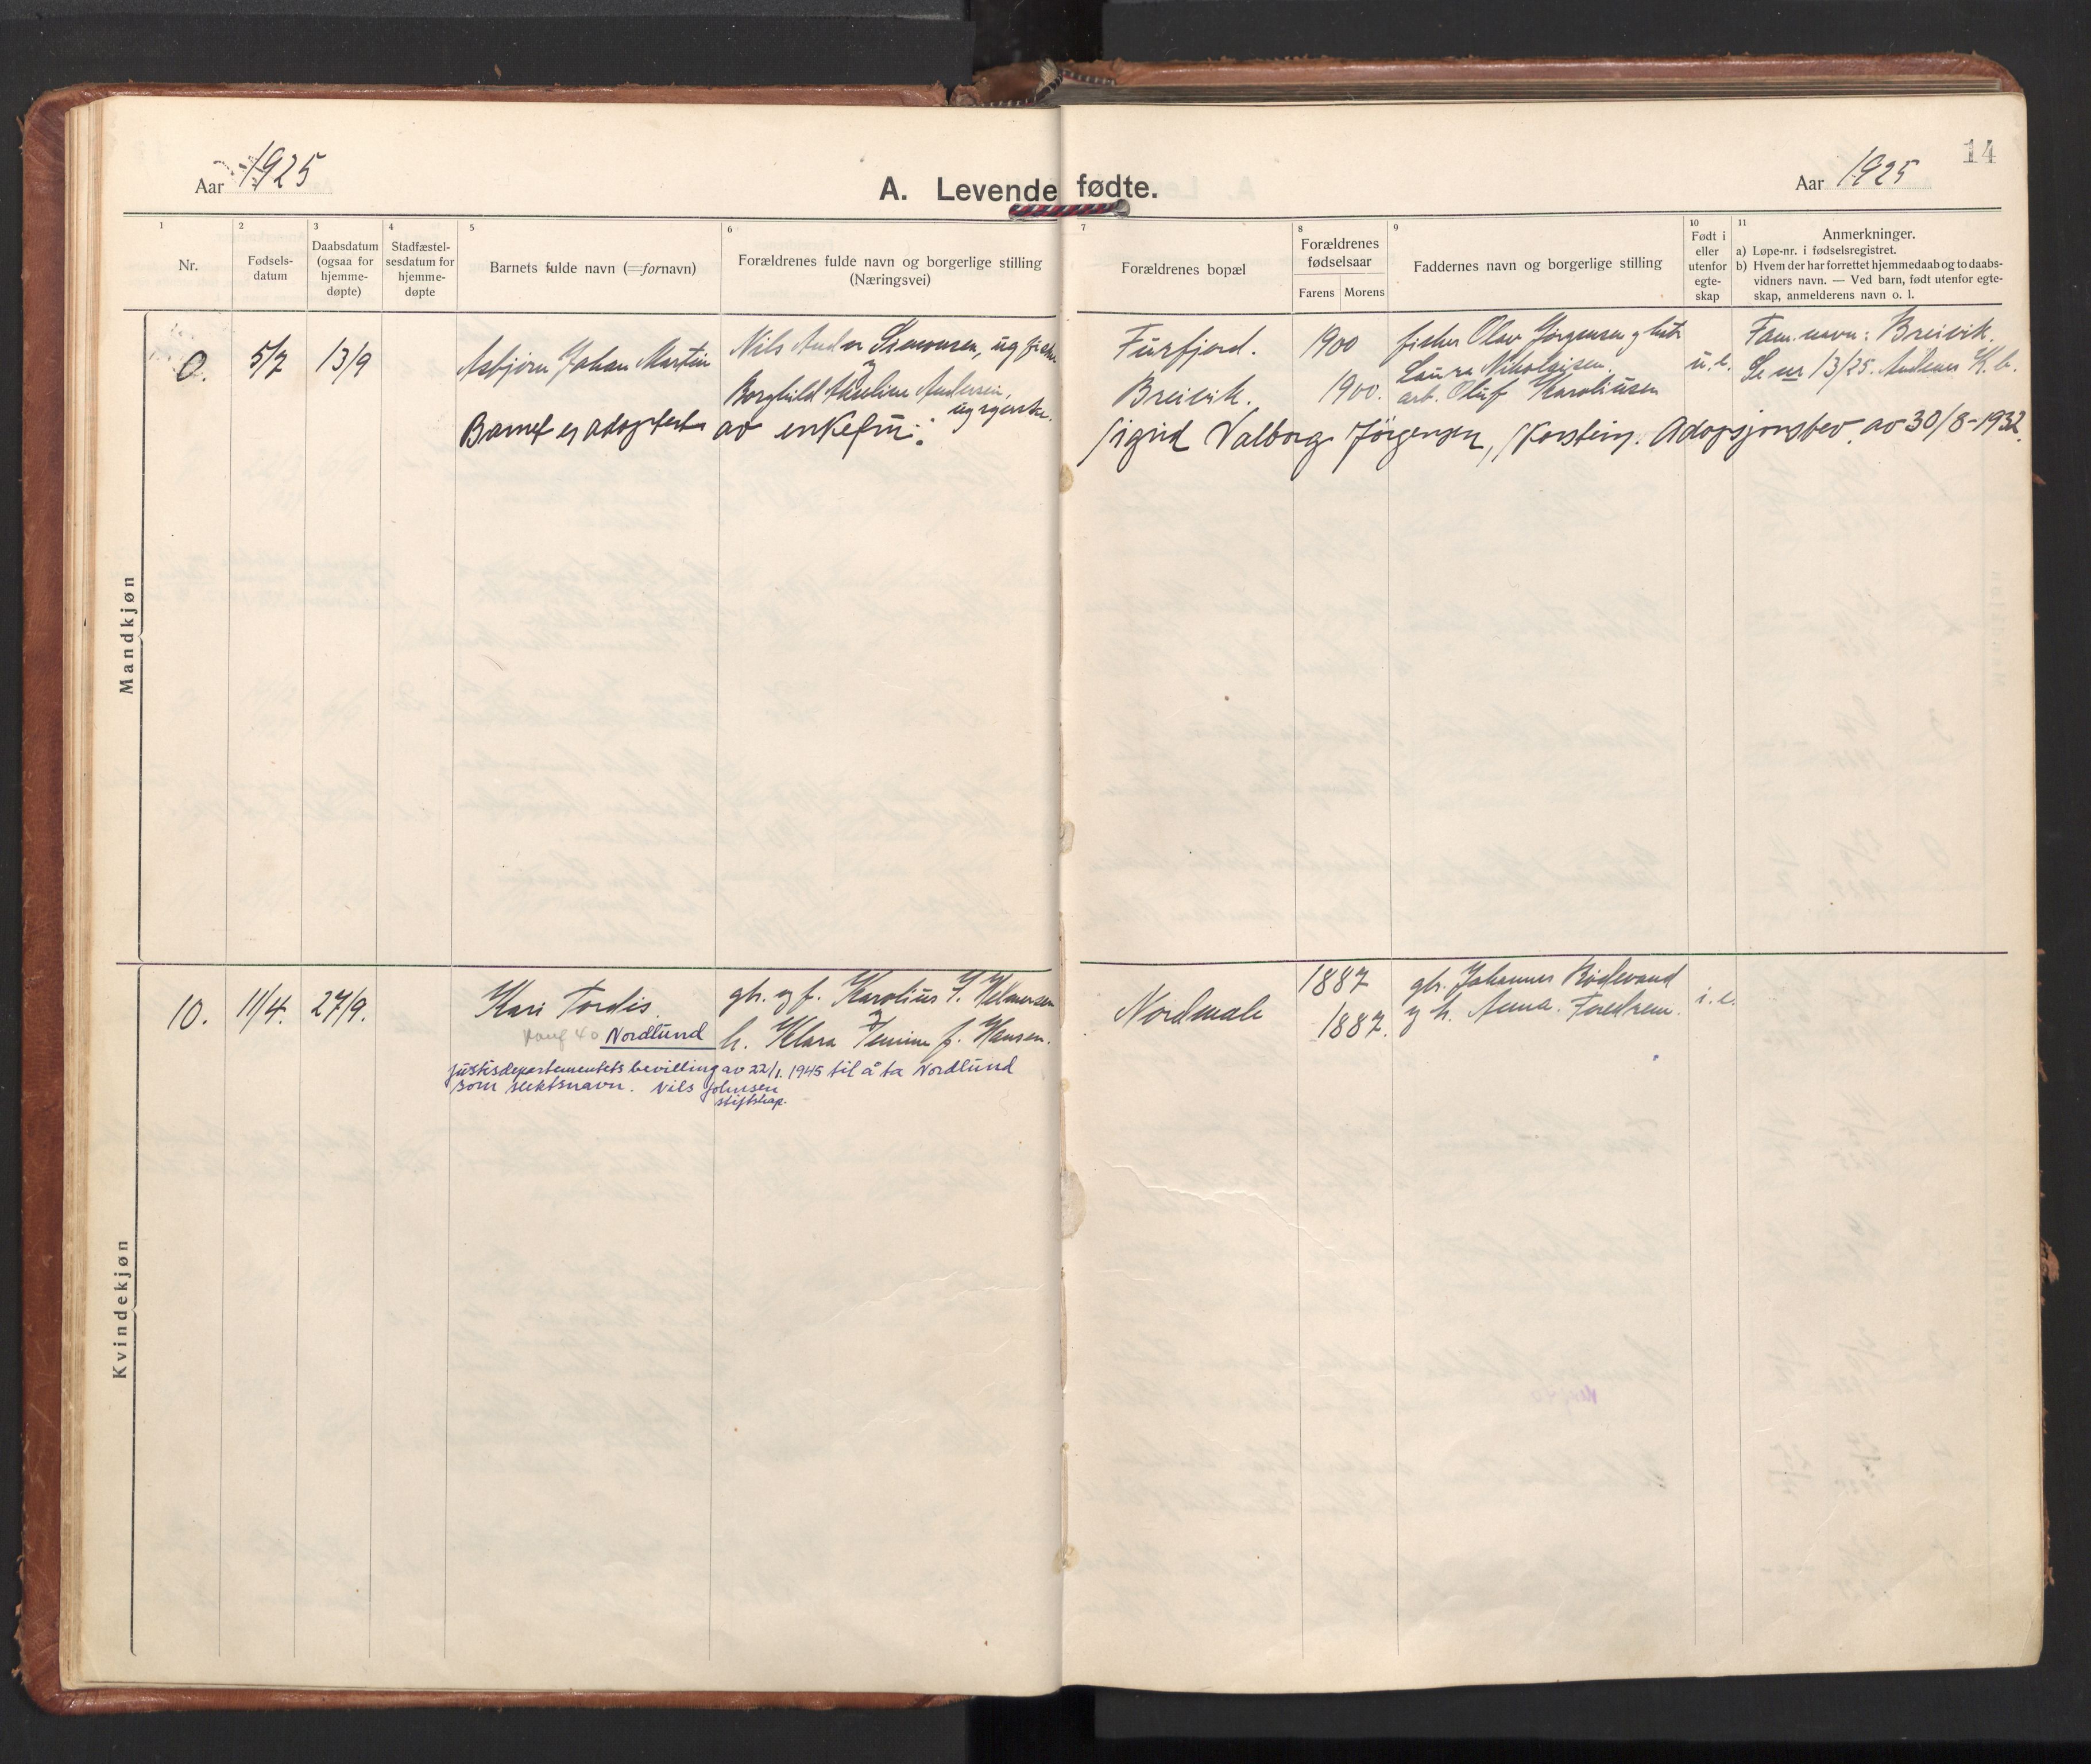 14
Aar 1925
A. Levende fødte.
Aar 1925
1
2
3
4
5
6
7
8
9
10
11
Nr.
Fødsels-
datum
Daabsdatum
(ogsaa for
hjemme-
døpte)
Stadfæstel-
sesdatum for
hjemme-
døpte
Barnets fulde navn (=fornavn)
Forældrenes fulde navn og borgerlige stilling
(Næringsvei)
Forældrenes bopæl
Forældrenes
fødselsaar
Farens Morens
Faddernes navn og borgerlige stilling
Født i
eller
utenfor
egte-
skap
Anmerkninger.
a) Løpe-nr. i fødselsregistret.
b) Hvem der har forrettet hjemmedaab og to daabs-
vidners navn. — Ved barn, født utenfor egte-
skap, anmelderens navn o. l.
Mandkjøn
0. 5/7 13/9
Asbjørn Johan Martin
Nils Simonsen, ug fisker
og
Borghild Andersen,
ug
Furfjord.
Breivik.
1900
1900.
fisker Olav Jørgensen og hustr
Laura Nikolaisen.
arb. Oluf Karoliusen
u. e.
Fam. navn: Breivik.
Se nr 13/25. Andenes K. b.
Barnet er adoptert av enkefru: Sigrid Valborg Jørgensen, Adopsjonsbev. av 30/8-1932.
Kvindekjøn
10. 11/4. 27/9.
Kari Tordis.
Nordlund
gbr. og f. Karolius
og
h. Klara f. Hansen.
Justisdepartementets bevilling av 22/1. 1945 til å ta Nordlund
som slektsnavn. Nils Johnsen
stiftskap.
Nordmele
1887
1887.
gbr. Johannes
og h. Anna.
i. e.